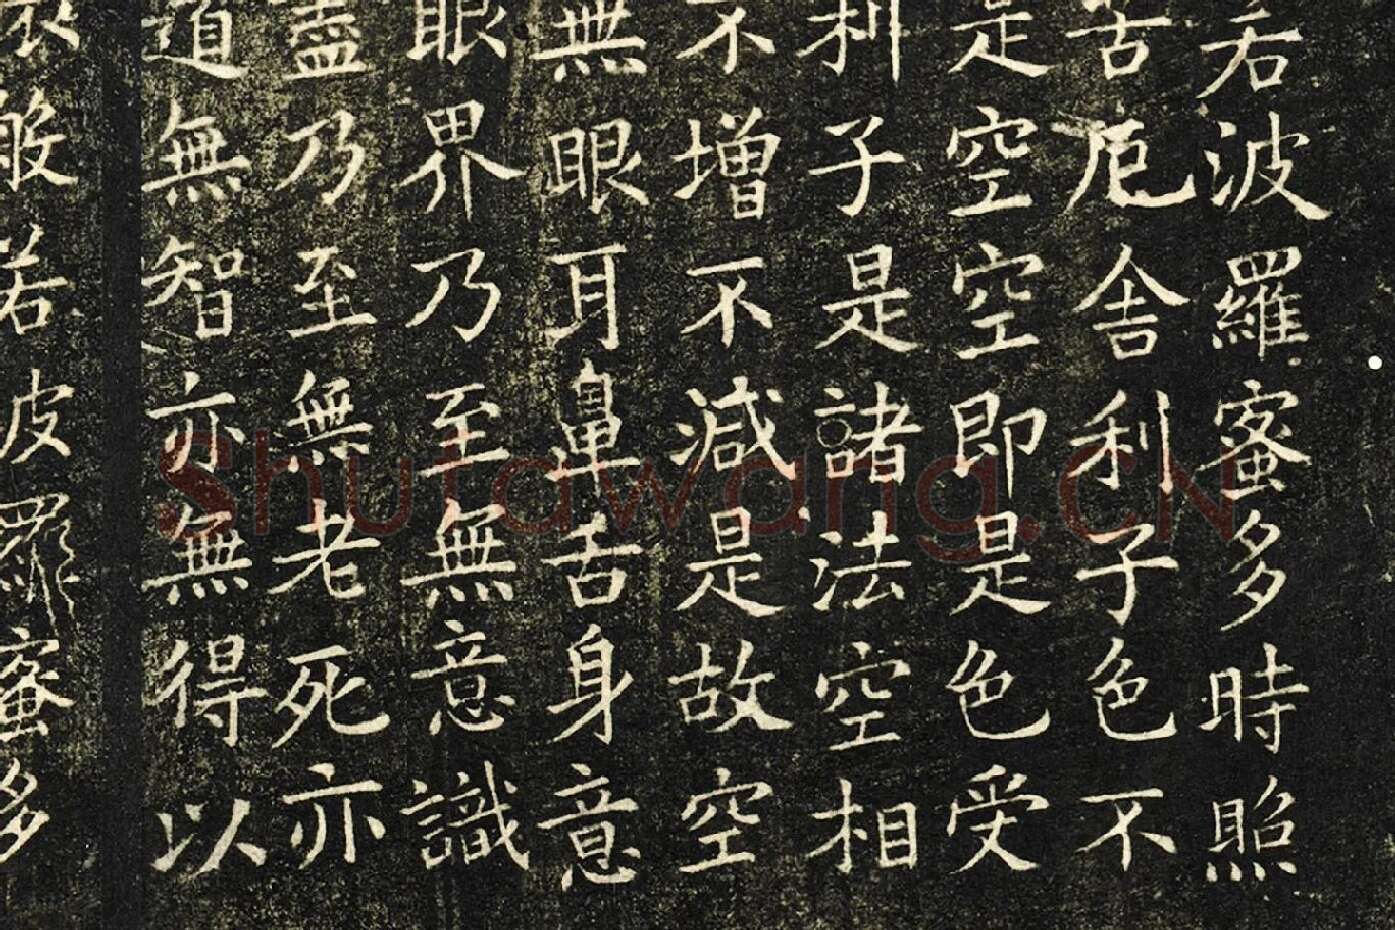 若波羅蜜多時照
苦厄舍利子色不
是空空即是色受
利子是諸法空相
不增不減是故空
無眼耳鼻舌身意
眼界乃至無意識
盡乃至無老死亦
道無智亦無得以
般若波羅蜜多
Shutawang.CN